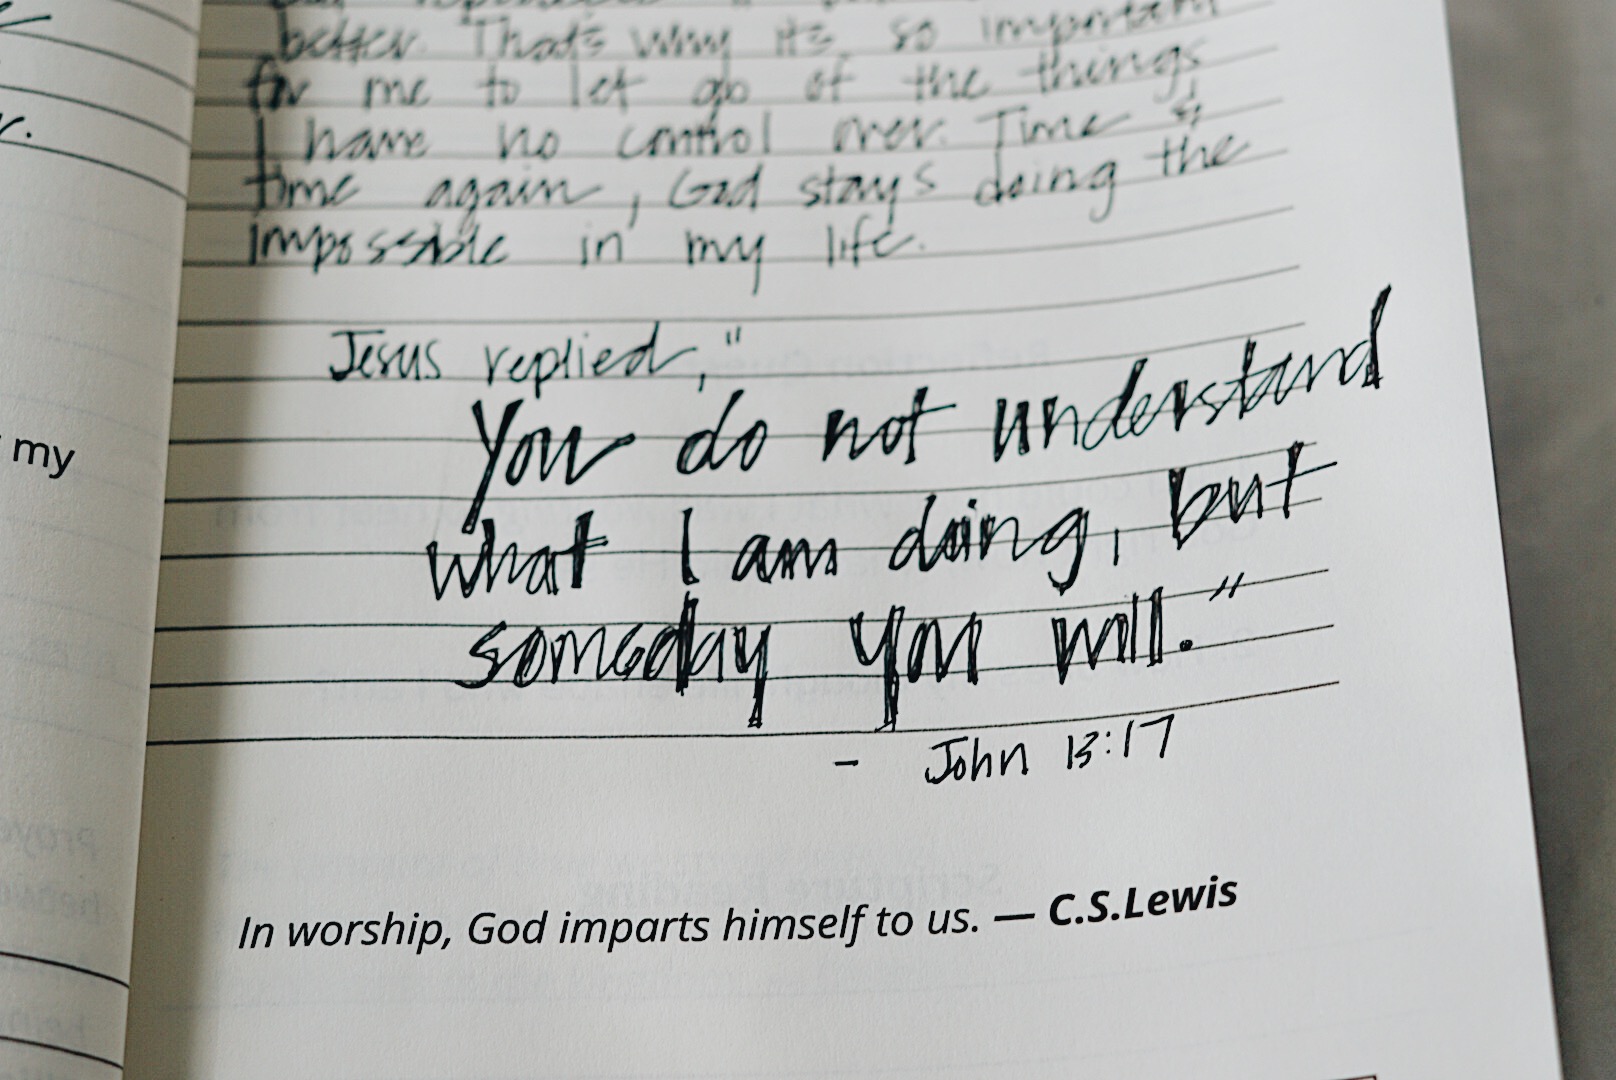 better. That's why its so important
for me to let go of the things
I have no control over. Time &
time again, God stays doing the
impossible in my life.
Jesus replied,"
You do not understand
what I am doing, but
someday you will."
- John 13:17
In worship, God imparts himself to us. — C.S.Lewis
my